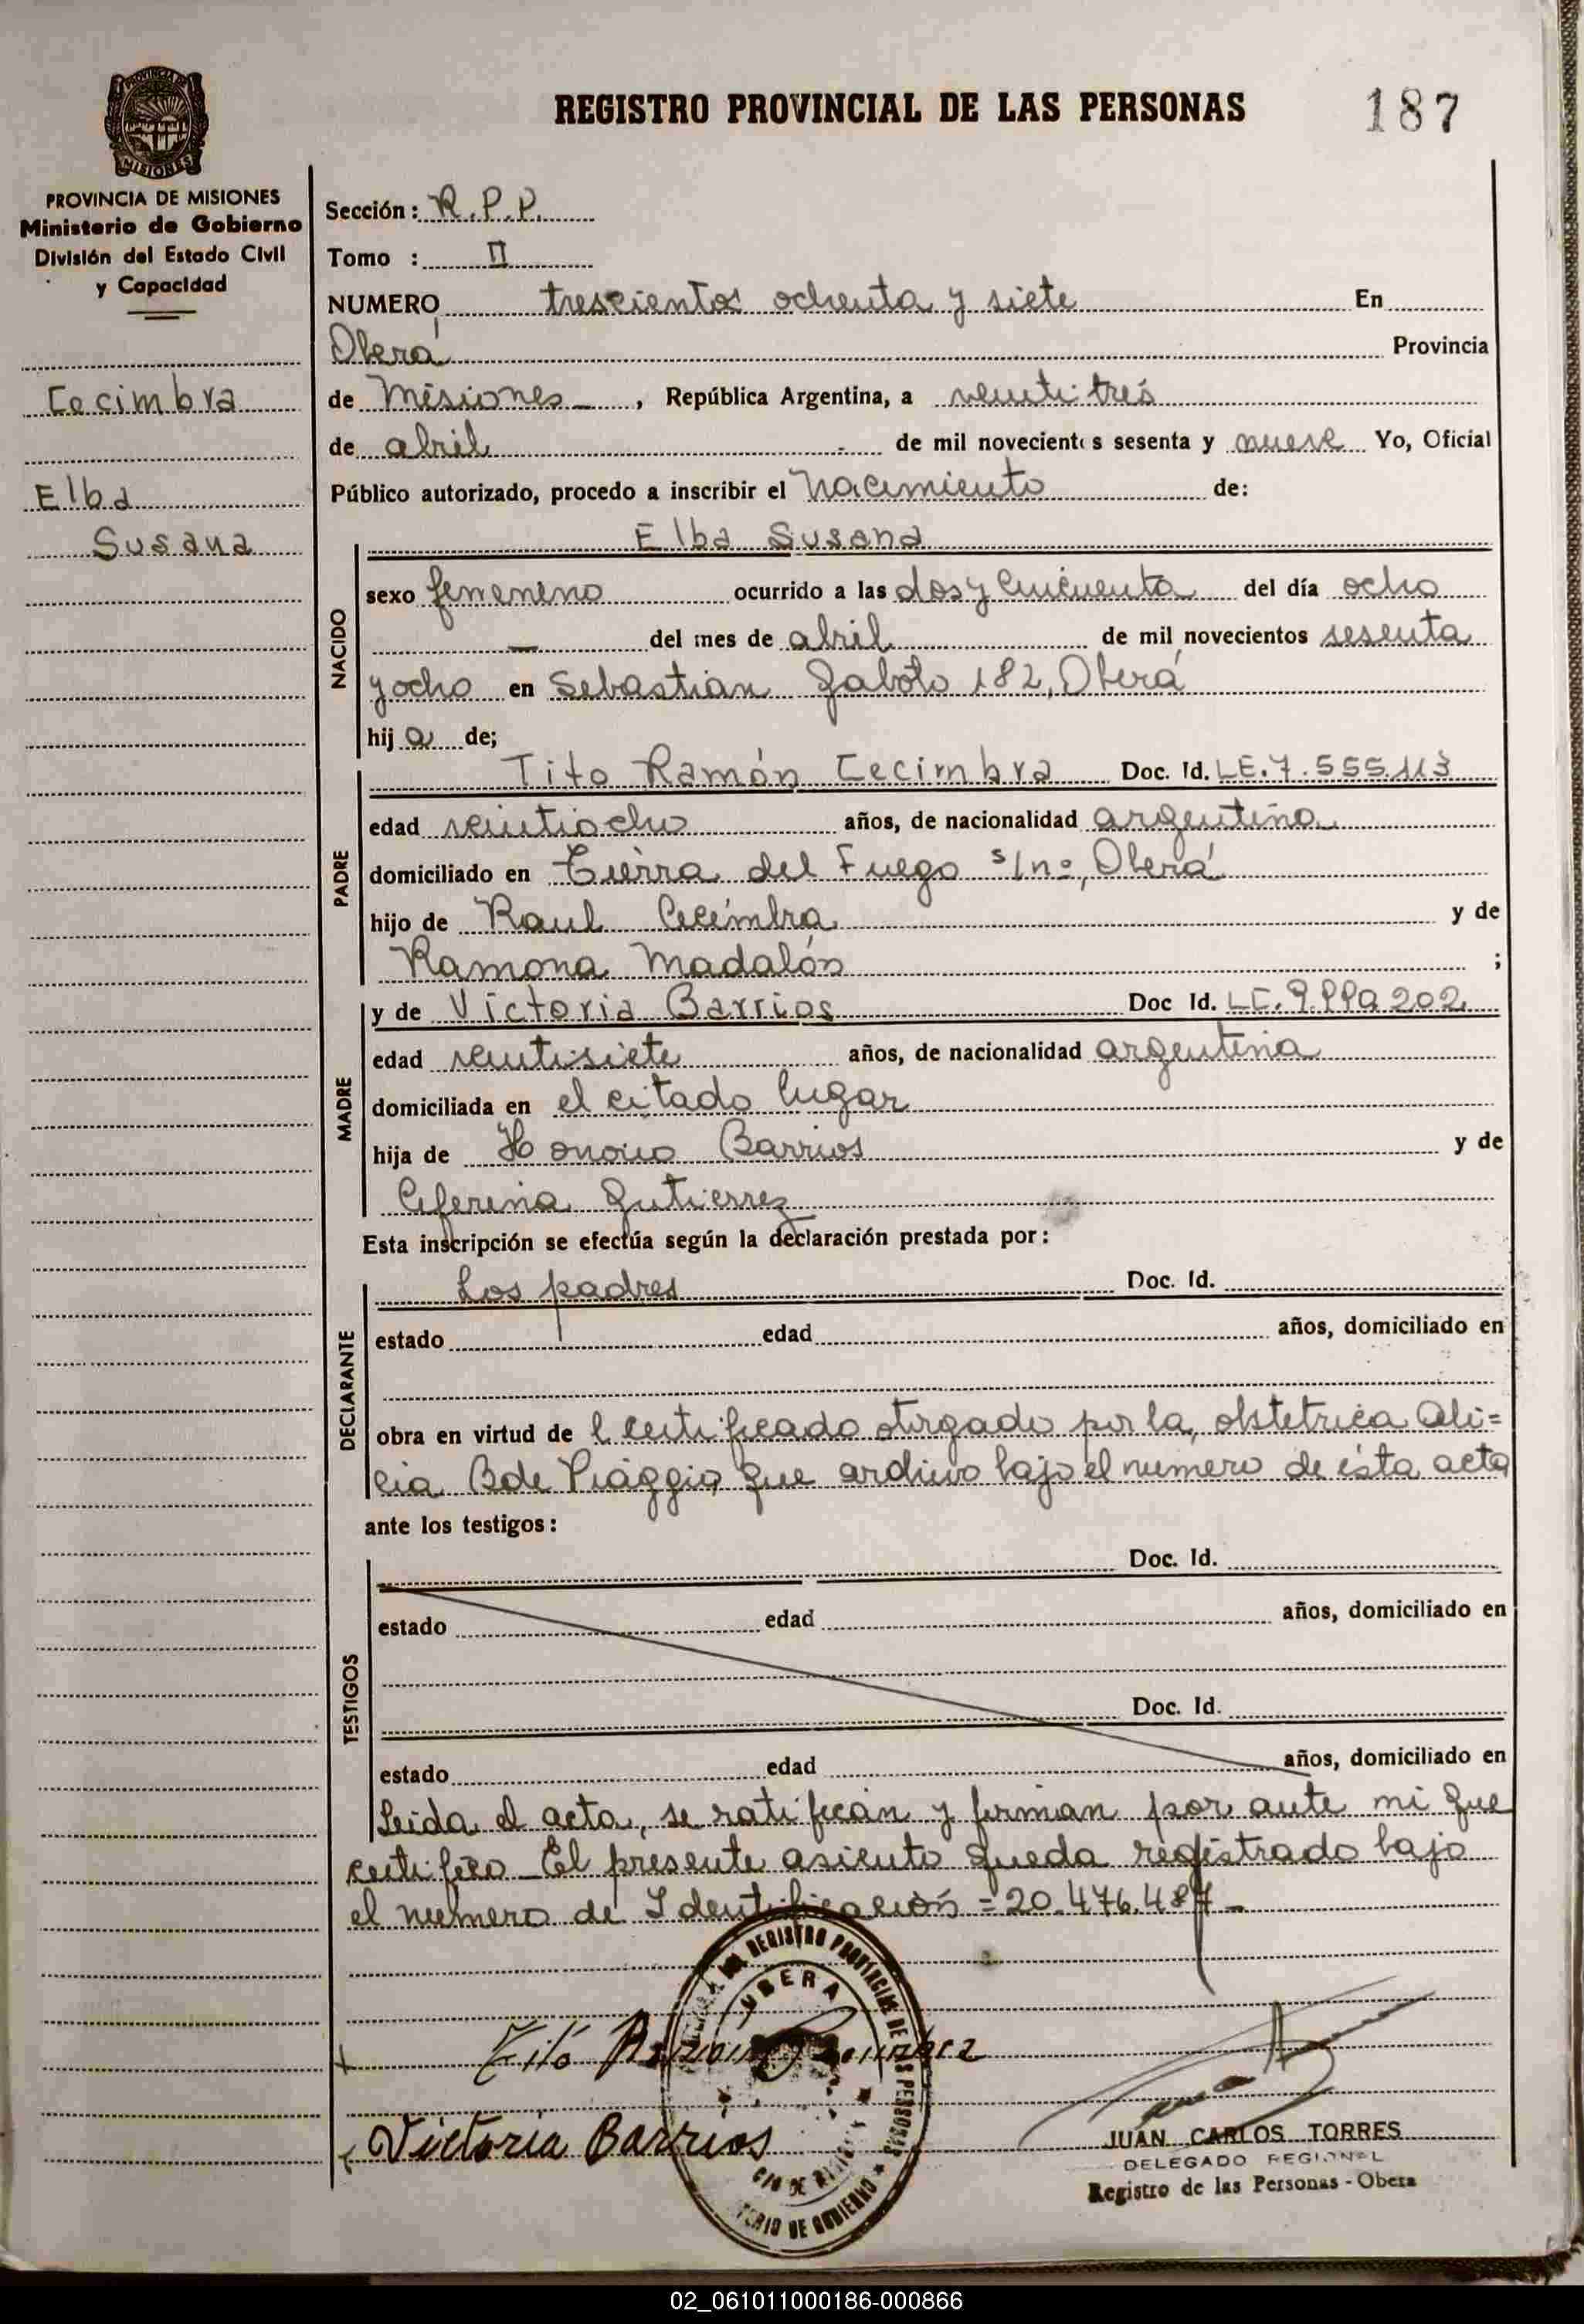 REGISTRO PROVINCIAL DE LAS PERSONAS
187
PROVINCIA DE MISIONES
Ministerio de Gobierno
División del Estado Civil
y Capacidad
Cecimbra
Elba
Susana
Sección: R.P.P.
Tomo : II
NUMERO trescientos ochenta y siete En
Oberá Provincia
de Misiones , República Argentina, a veintitrés
de abril de mil novecientos sesenta y nueve Yo, Oficial
Público autorizado, procedo a inscribir el nacimiento de:
Elba Susana
NACIDO
sexo femenino ocurrido a las dos y cincuenta del día ocho
— del mes de abril de mil novecientos sesenta
y ocho en Sebastián Gaboto 182, Oberá
hij a de;
PADRE
Tito Ramón Cecimbra Doc. Id. LE.7.555.113
edad veintiocho años, de nacionalidad argentina
domiciliado en Tierra del Fuego s/nº, Oberá
hijo de Raul Cecimbra y de
Ramona Madalón ;
MADRE
y de Victoria Barrios Doc Id.
edad veintisiete años, de nacionalidad argentina
domiciliada en el citado lugar
hija de Barrios y de
Ceferina Gutierrez
Esta inscripción se efectúa según la declaración prestada por:
DECLARANTE
Los padres Doc. Id.
estado edad años, domiciliado en
obra en virtud de l certificado otorgado por la, obstetrica Ali=
cia B de Piaggio, que archivo bajo el numero de ésta acta
ante los testigos:
TESTIGOS
Doc. Id.
estado edad años, domiciliado en
Doc. Id.
estado edad años, domiciliado en
Leida el acta, se ratifican y firman por ante mi que
certifico_ El presente asiento queda registrado bajo
el numero de Identificación = 20.476.487_
Tito Ramón
Victoria Barrios
REGISTRO PROVINCIAL DE LAS PERSONAS
OBERA
JUAN CARLOS TORRES
DELEGADO REGIONAL
Registro de las Personas - Obera
02_061011000186-000866